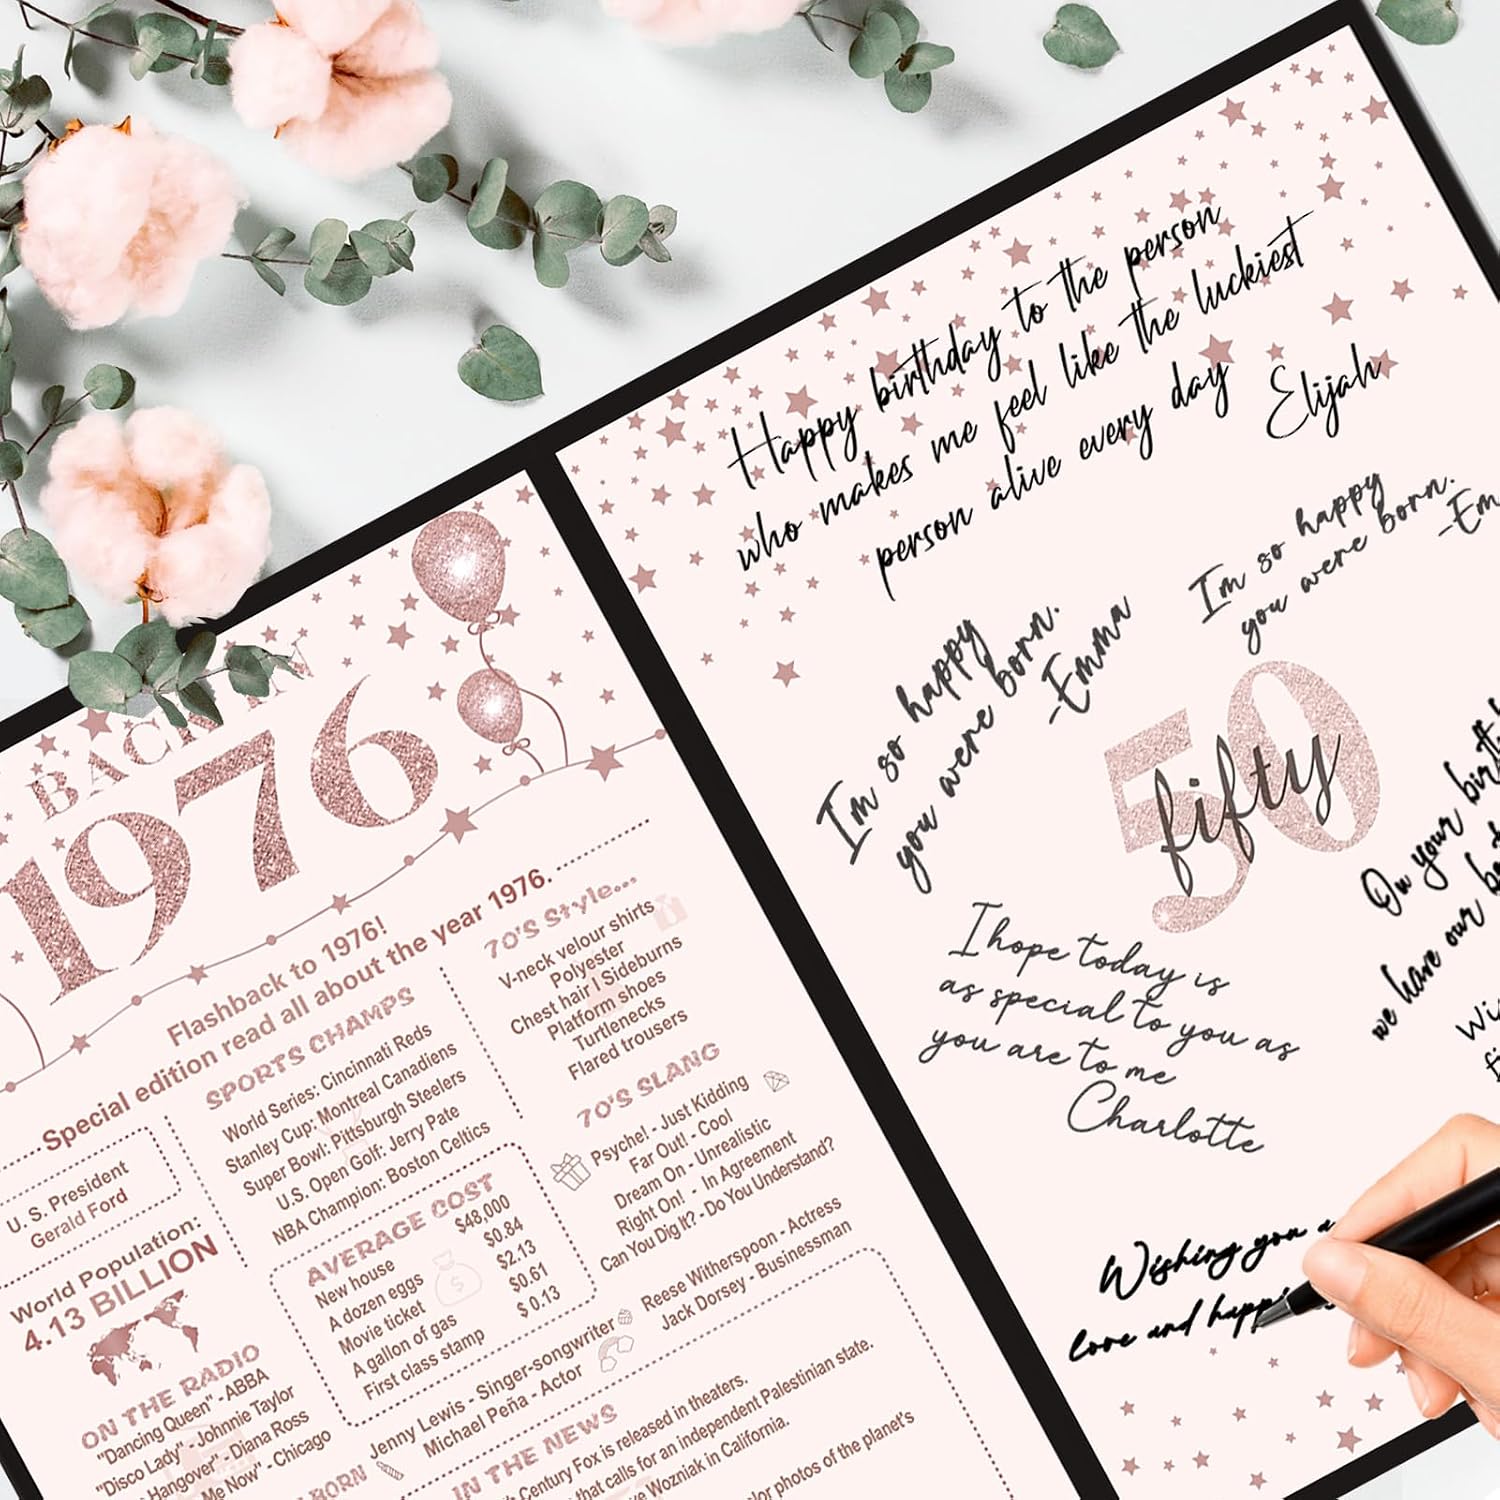 BACK IN
1976
Flashback to 1976!
Special edition read all about the year 1976.
U. S. President
Gerald Ford
World Population:
4.13 BILLION
ON THE RADIO
"Dancing Queen" - ABBA
"Disco Lady" - Johnnie Taylor
Hangover" - Diana Ross
Me Now" - Chicago
SPORTS CHAMPS
World Series: Cincinnati Reds
Stanley Cup: Montreal Canadiens
Super Bowl: Pittsburgh Steelers
U.S. Open Golf: Jerry Pate
NBA Champion: Boston Celtics
AVERAGE COST
New house $48,000
A dozen eggs $0.84
Movie ticket $2.13
A gallon of gas $0.61
First class stamp $ 0.13
70'S Style...
V-neck velour shirts
Polyester
Chest hair I Sideburns
Platform shoes
Turtlenecks
Flared trousers
70'S SLANG
Psyche! - Just Kidding
Far Out! - Cool
Dream On - Unrealistic
Right On! - In Agreement
Can You Dig It? - Do You Understand?
BORN
Jenny Lewis - Singer-songwriter
Michael Peña - Actor
Reese Witherspoon - Actress
Jack Dorsey - Businessman
IN THE NEWS
Century Fox is released in theaters.
that calls for an independent Palestinian state.
Wozniak in California.
photos of the planet's
Happy birthday to the person
who makes me feel like the luckiest
person alive every day
Elijah
I'm so happy
you were born.
-Emma
I'm so happy
you were born.
-Em
50
fifty
On your
we have our
I hope today is
as special to you as
you are to me
Charlotte
Wishing you a
love and